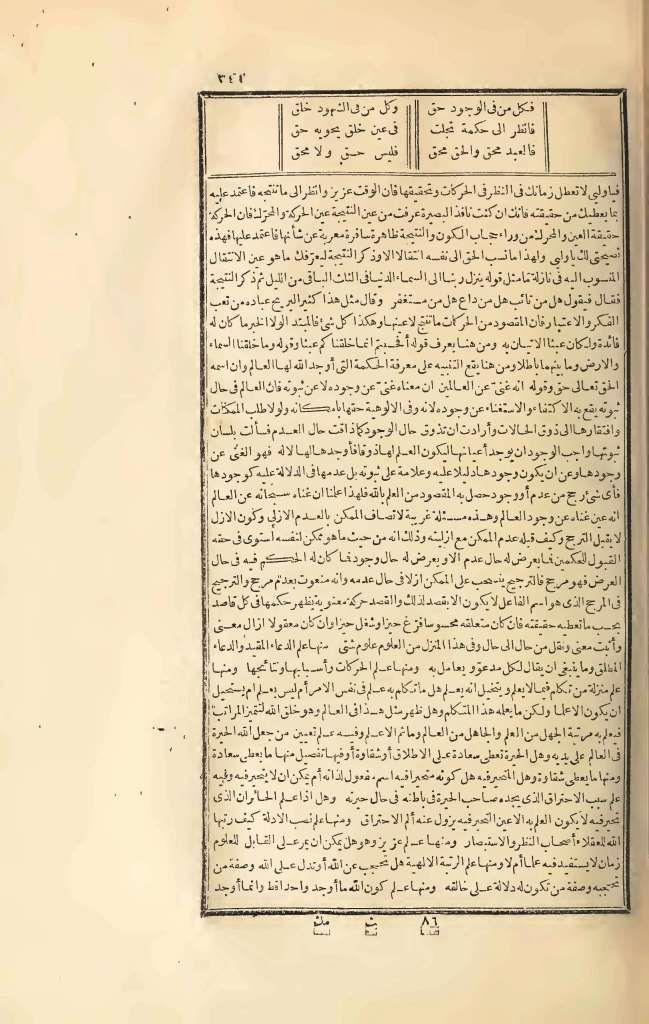 ٣٤٤
فكل من فى الوجود حق
وكل من فى الشهود خلق
فانظر الى حكمة تجلت
فى عين خلق يحويه حق
فالعبد محق والحق محق
فليس حق ولا محق
فيا وليى لا تعطل زمانك فى النظر فى الحركات وتحقيقها فان الوقت عزيز وانظر الى ما تنتجه فاعتمد عليه
بما يعطيك من حقيقته فانك ان كنت نافذ البصيرة عرفت من عين النتيجة عين الحركة والمحرك فان الحركة
حقيقة العين والمحرك من وراء حجاب الكون والنتيجة ظاهرة سافرة معربة عن شأنها فاعتمد عليها فهذه
نصيحتى لك يا وليى ولهذا ما نسب الحق الى نفسه انتقالا الا وذكر النتيجة ليعرفك ما هو عين الانتقال
المنسوب اليه فى نازلة ما مثل قوله ينزل ربنا الى السماء الدنيا فى الثلث الباقى من الليل ثم ذكر النتيجة
فقال فيقول هل من تائب هل من داع هل من مستغفر وقال مثل هذا كثيرا ليريح عباده من تعب
الفكر والاعتبار فان المقصود من الحركات ما تنتج لاعينها وهكذا كل شئ فالمبتدا لولا الخبر ما كان له
فائدة ولكان عبثا الاتيان به ومن هنا يعرف قوله أفحسبتم انما خلقناكم عبثا وقوله وما خلقنا السماء
والارض وما بينهما باطلا ومن هنا يقع التنبيه على معرفة الحكمة التى أوجد الله لها العالم وان اسمه
الحق تعالى حق وقوله انه غنى عن العالمين ان معناه غنى عن وجوده لا عن ثبوته فان العالم فى حال
ثبوته يقع به الاكتفاء والاستغناء عن وجوده لانه وفى الالوهية حقها بامكانه ولولا طلب الممكنات
وافتقارها الى ذوق الحالات وأرادت ان تذوق حال الوجود كما ذاقت حال العدم فسألت بلسان
ثبوتها واجب الوجود ان يوجد أعيانها ليكون العلم لها ذوقا فأوجدها لها لا له فهو الغنى عن
وجودها وعن ان يكون وجودها دليلا عليه وعلامة على ثبوته بل عدمها فى الدلالة عليه كوجودها
فأى شئ رجح من عدم أو وجود حصل به المقصود من العلم بالله فلهذا علمنا ان غناه سبحانه عن العالم
انه عين غناه عن وجود العالم وهذه مسئلة غريبة لاتصاف الممكن بالعدم الازلى وكون الازل
لا يقبل الترجح وكيف قبله عدم الممكن مع ازليته وذلك انه من حيث ما هو ممكن لنفسه استوى فى حقه
القبول للحكمين فما يعرض له حال عدم الاو يعرض له حال وجود فما كان له الحكم فيه فى حال
العرض فهو مرجح فالترجيح ينسحب على الممكن ازلا فى حال عدمه وانه منعوت بعدم مرجح والترجيح
فى المرجح الذى هو اسم الفاعل لا يكون الا بقصد لذلك والقصد حركة معنوية يظهر حكمها فى كل قاصد
بحسب ما تعطيه حقيقته فان كان متعلقه محسوسا فرغ حيزا وشغل حيزا وان كان معقولا ازال معنى
وأثبت معنى ونقل من حال الى حال وفى هذا المنزل من العلوم علوم شتى منها علم الدعاء المقيد والدعاء
المطلق وما ينبغى ان يقال لكل مدعو ويعامل به ومنها علم الحركات وأسبابها ونتائجها ومنها
علم منزلة من تكلم فيما لا يعلم ويتخيل انه يعلم هل ما تكلم به علم فى نفس الامر أم ليس بعلم ام يستحيل
ان يكون الا علما ولكن ما يعلمه هذا المتكلم وهل ظهر مثل هذا فى العالم وهو خلق الله لتتميز المراتب
فيعلم به مرتبة الجهل من العلم والجاهل من العالم وما ثم الا علم وفيه علم تعيين من جعل الله الحيرة
فى العالم على يديه وهل الحيرة تعطى سعادة على الاطلاق أو شقاوة أو فيها تفصيل منها ما يعطى سعادة
ومنها ما يعطى شقاوة وهل المتحير فيه هل كونه متحيرا فيه اسم مفعول لذاته أم يمكن ان لا يتحير فيه وفيه
علم سبب الاحتراق الذى يجده صاحب الحيرة فى باطنه فى حال حيرته وهل اذا علم الحائر ان الذى
تحير فيه لا يكون العلم به الا عين التحير فيه يزول عنه ألم الاحتراق ومنها علم نصب الادلة كيف رتبها
الله للعقلاء أصحاب النظر والاستبصار ومنها علم عزيز وهو هل يمكن ان يمر على القابل للعلوم
زمان لا يستفيد فيه علما أم لا ومنها علم الرتبة الالهية هل تحجب عن الله أو تدل على الله وصفة من
تحجبه وصفة من تكون له دلالة على خالقه ومنها علم كون الله ما أوجد واحدا قط وانما أوجد
٨٦ ت مك